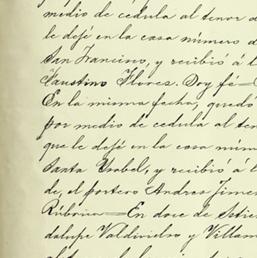 medio de cedula al tenor d
le dejé en la casa número d
San Francisco, y recibió á l
Faustino Flores. Doy fé=
En la misma fecha, quedó
por medio de cedula al ten
que le dejé en la casa núm
Santa Ysabel, y recibió á l
de, el portero Andres Jime
Rúbrica=En doce de Setie
dalupe Valdivielso y Villam